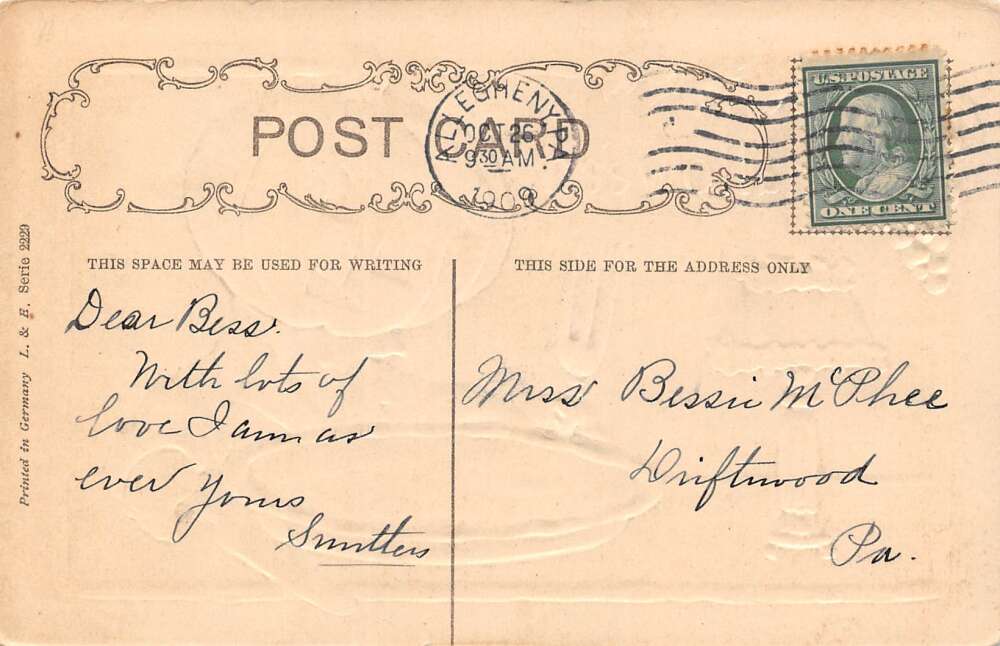 POST CARD
ALLEGHENY, PA.
OCT 26
9 30 AM
1909
U.S. POSTAGE
ONE CENT
THIS SPACE MAY BE USED FOR WRITING
THIS SIDE FOR THE ADDRESS ONLY
Printed in Germany L. & E. Serie 2229
Dear Bess.
With lots of
love I am as
ever yours
Miss Bessie McPhee
Driftwood
Pa.